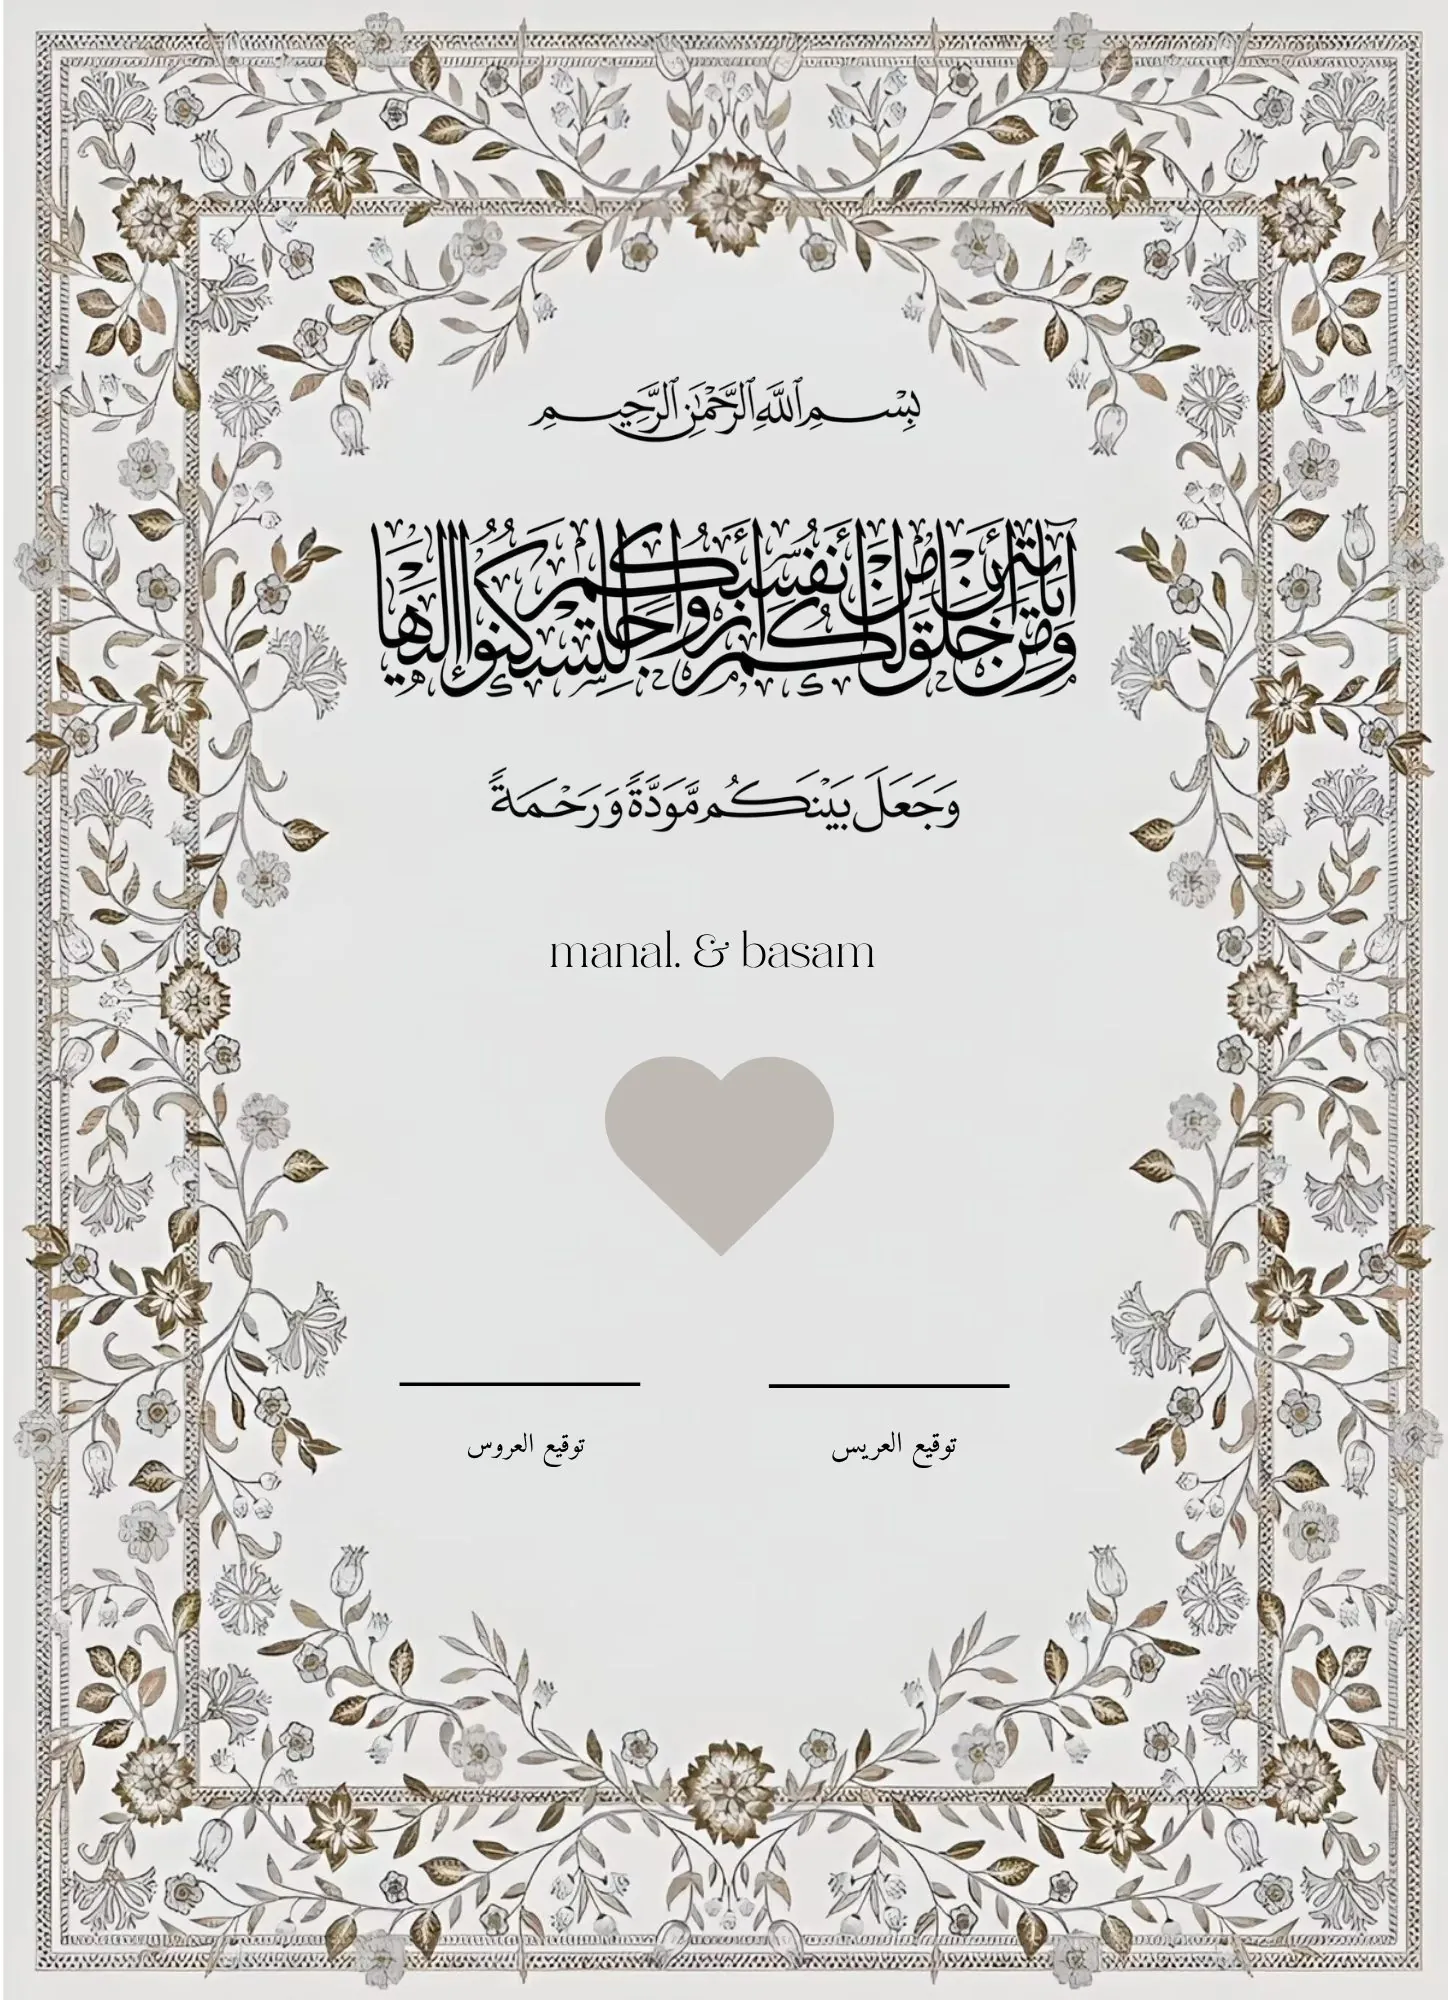 بِسْمِ ٱللَّهِ ٱلرَّحْمَٰنِ ٱلرَّحِيمِ
وَمِنْ آيَاتِهِ أَنْ خَلَقَ لَكُم مِّنْ أَنفُسِكُمْ أَزْوَاجًا لِّتَسْكُنُوا إِلَيْهَا
وَجَعَلَ بَيْنَكُم مَّوَدَّةً وَرَحْمَةً
manal. & basam
توقيع العريس
توقيع العروس